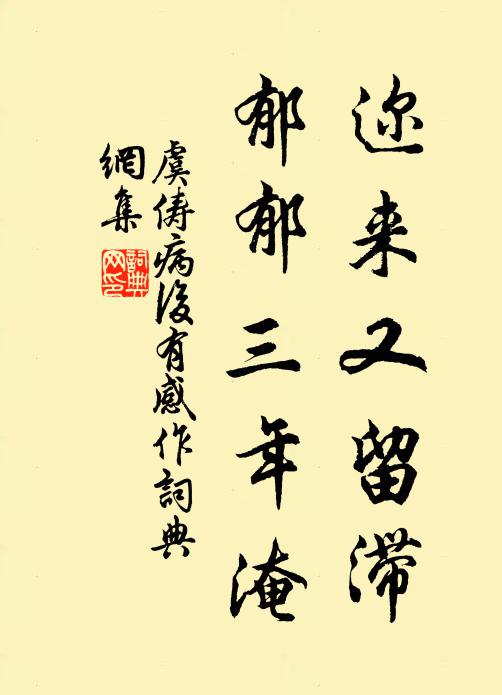 迩来又留滞
郁郁三年淹
虞俦病後有感作詞典
網集
詞典
网印